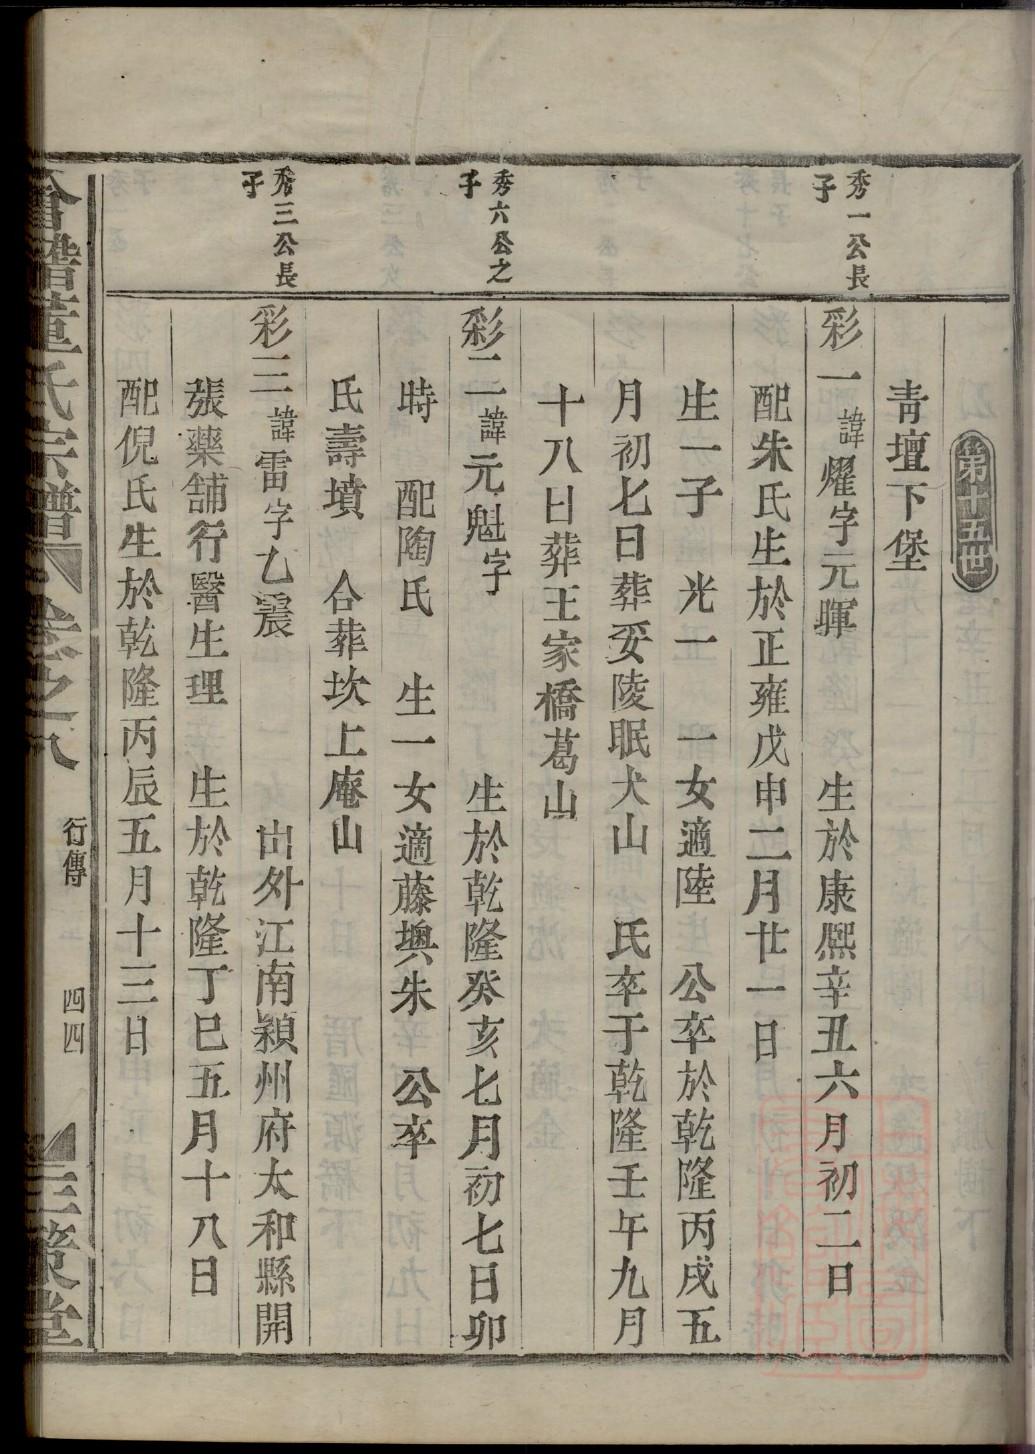 第十五世
青壇下堡
秀一公長子
彩一諱燿字元暉 生於康熈辛丑六月初二日
配朱氏生於正雍戊申二月廿一日
生一子 光一 一女適陸 公卒於乾隆丙戌五
月初七日葬妥陵眠犬山 氏卒于乾隆壬午九月
十八日葬王家橋葛山
秀六公之子
彩二諱元魁字 生於乾隆癸亥七月初七日卯
時 配陶氏 生一女適藤墺朱 公卒
氏壽墳 合葬坎上庵山
秀三公長子
彩三諱雷字乙震 出外江南潁州府太和縣開
張藥舖行醫生理 生於乾隆丁巳五月十八日
配倪氏生於乾隆丙辰五月十三日
會稽董氏宗譜 卷之八 行傳 四四 三策堂